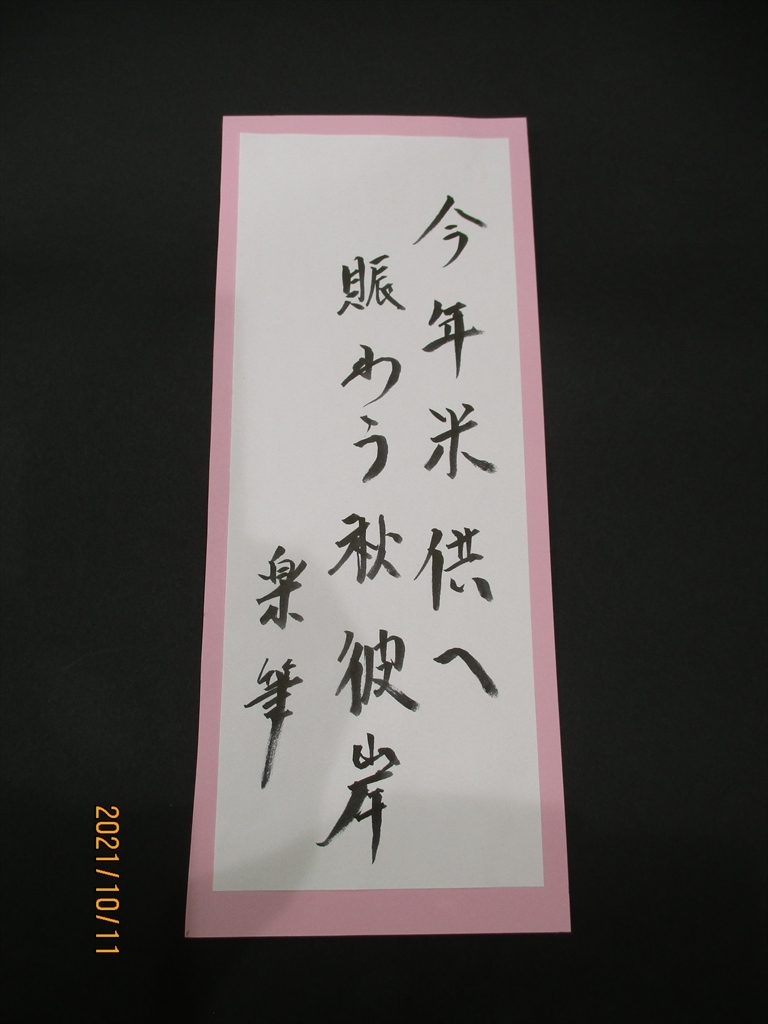 今年米供へ
賑わう秋彼岸
楽筆
2021/10/11